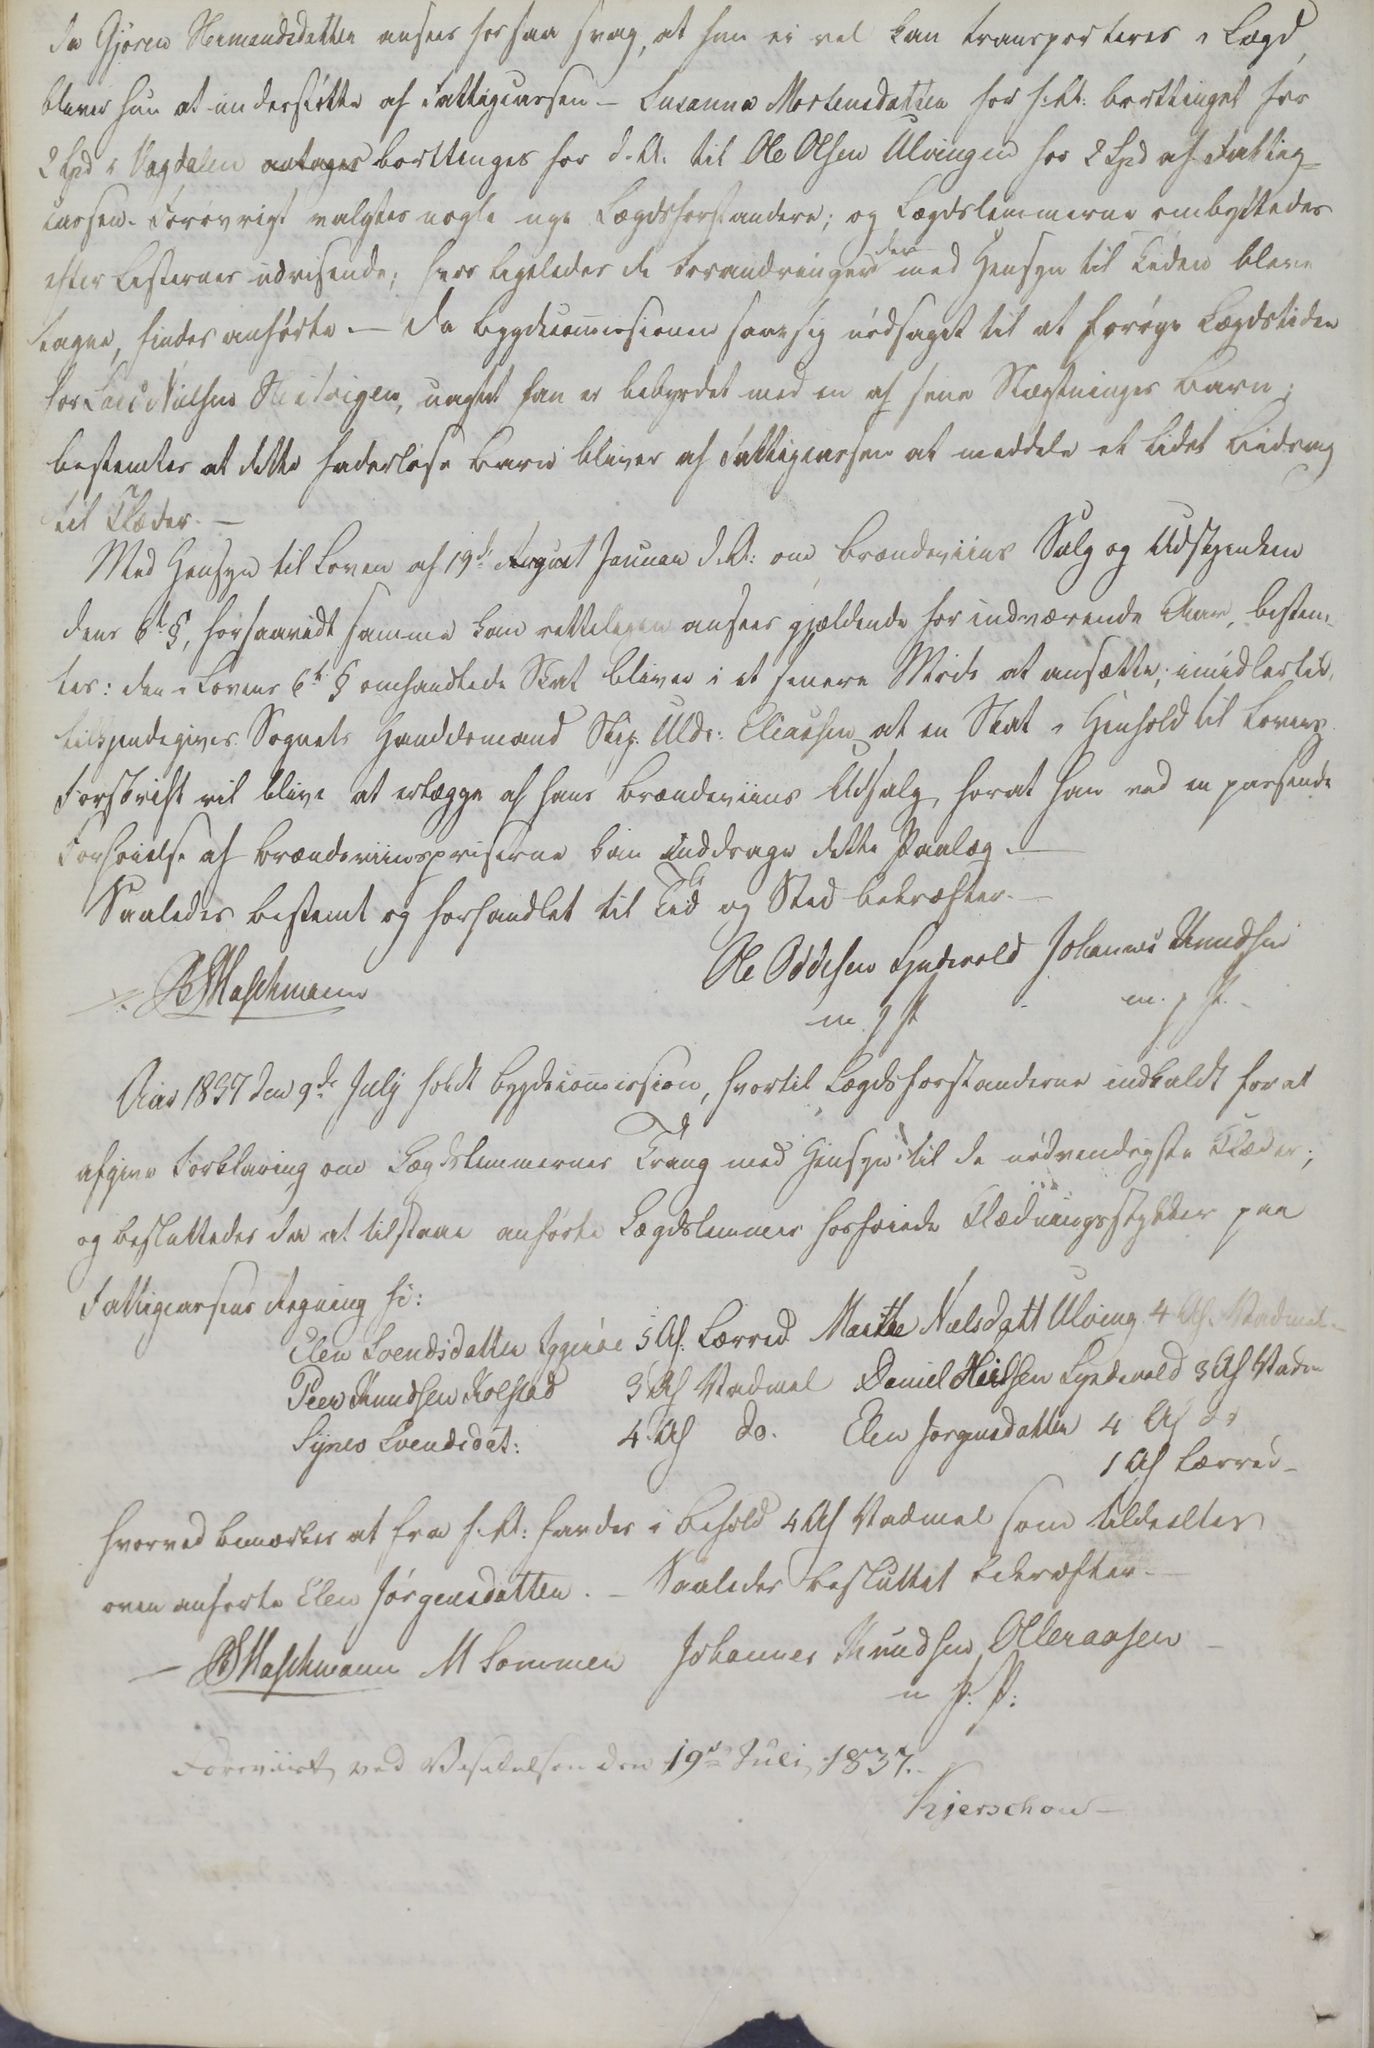 da Gjøren Hermandsdatter ansees for saa svag, at hun ei vel kan transporteres i Lægd,
bliver hun at understøtte af Fattigcassen. – Susanna Mortensdatter for f: A: borttinget for
2 Spd i Vegdalen antages borttinges for d. A. til Ole Olsen Ulvingen for 2 Spd af Fattig-
cassen. Forøvrigt valgtes nogle nye Lægdsforstandere; og Lægdslemmerne ombyttedes
efter Listernes udvisende; hvor ligeledes de Forandringer der med Hensyn til Tiden bleve
tagne, findes anførte. – Da Bygdecommissionen saae sig nødsaget til at forøge Lægdstiden
for Lars Nielsen, uagtet han er bebyrdet med en af sine Slægtninges Barn;
bestemtes at dette faderløse Barn bliver af Fattigcassen at meddele et lidet Bidrag
til Klæder. –
Med Hensyn til Loven af 19de August Januar d. A: om Brændeviins Salg og Udskjenken
dens 6te §, forsaavidt samme kan retteligen ansees gjældende for indværende Aar, bestem-
tes: den i Lovens 6te § omhandlede Skat bliver i et senere Møde at ansætte; imidlertid
tilkjendegives Sognets Handelsmand Skip. Uldr: Eliassen at en Skat i Henhold til Lovens
Forskrift vil blive at erlægge af hans Brændeviins Udsalg, forat han ved en passende
Forhøielse af Brændeviinspriserne kan inddrage dette Paalæg. –
Saaledes bestemt og forhandlet til Tid og Sted bekræfter. –
Maschmann Ole Oddesen Syndvold Johannes Knudsen
m. p. P. m. p. P. –
Aar 1837 den 9de July holdt Bygdecommission, hvortil Lægdsforstanderne indkaldt for at
afgive Forklaring om Lægdslemmernes Trang med Hensyn til de nødvendigste Klæder;
og besluttedes da at tilstaae anførte Lægdslemmer hosføiede Klædningsstykker paa
Fattigcassens Regning
Elen Svendsdatter 5 Al. Lærred Marthe Nielsdatt Ulving 4 Al. Vadmel –
Peer Knudsen Kolstad 3 Al Vadmel Daniel Nielsen Syndvold 3 Al Vadm
Synev Svendsdat: 4 Al do. Elen Jørgensdatter 4 Al do
1 Al Lærred –
Hvorved bemærkes at fra f. A: havdes i Behold 4 Al Vadmel som tildeeltes
oven anførte Elen Jørgensdatter. – Saaledes besluttet bekræfter –
– Maschmann M Sommer Johannes Knudsen Olleraasen –
m p: P:
Foreviist ved Visitatsen den 19de Juli 1837. –
Kjerschow –